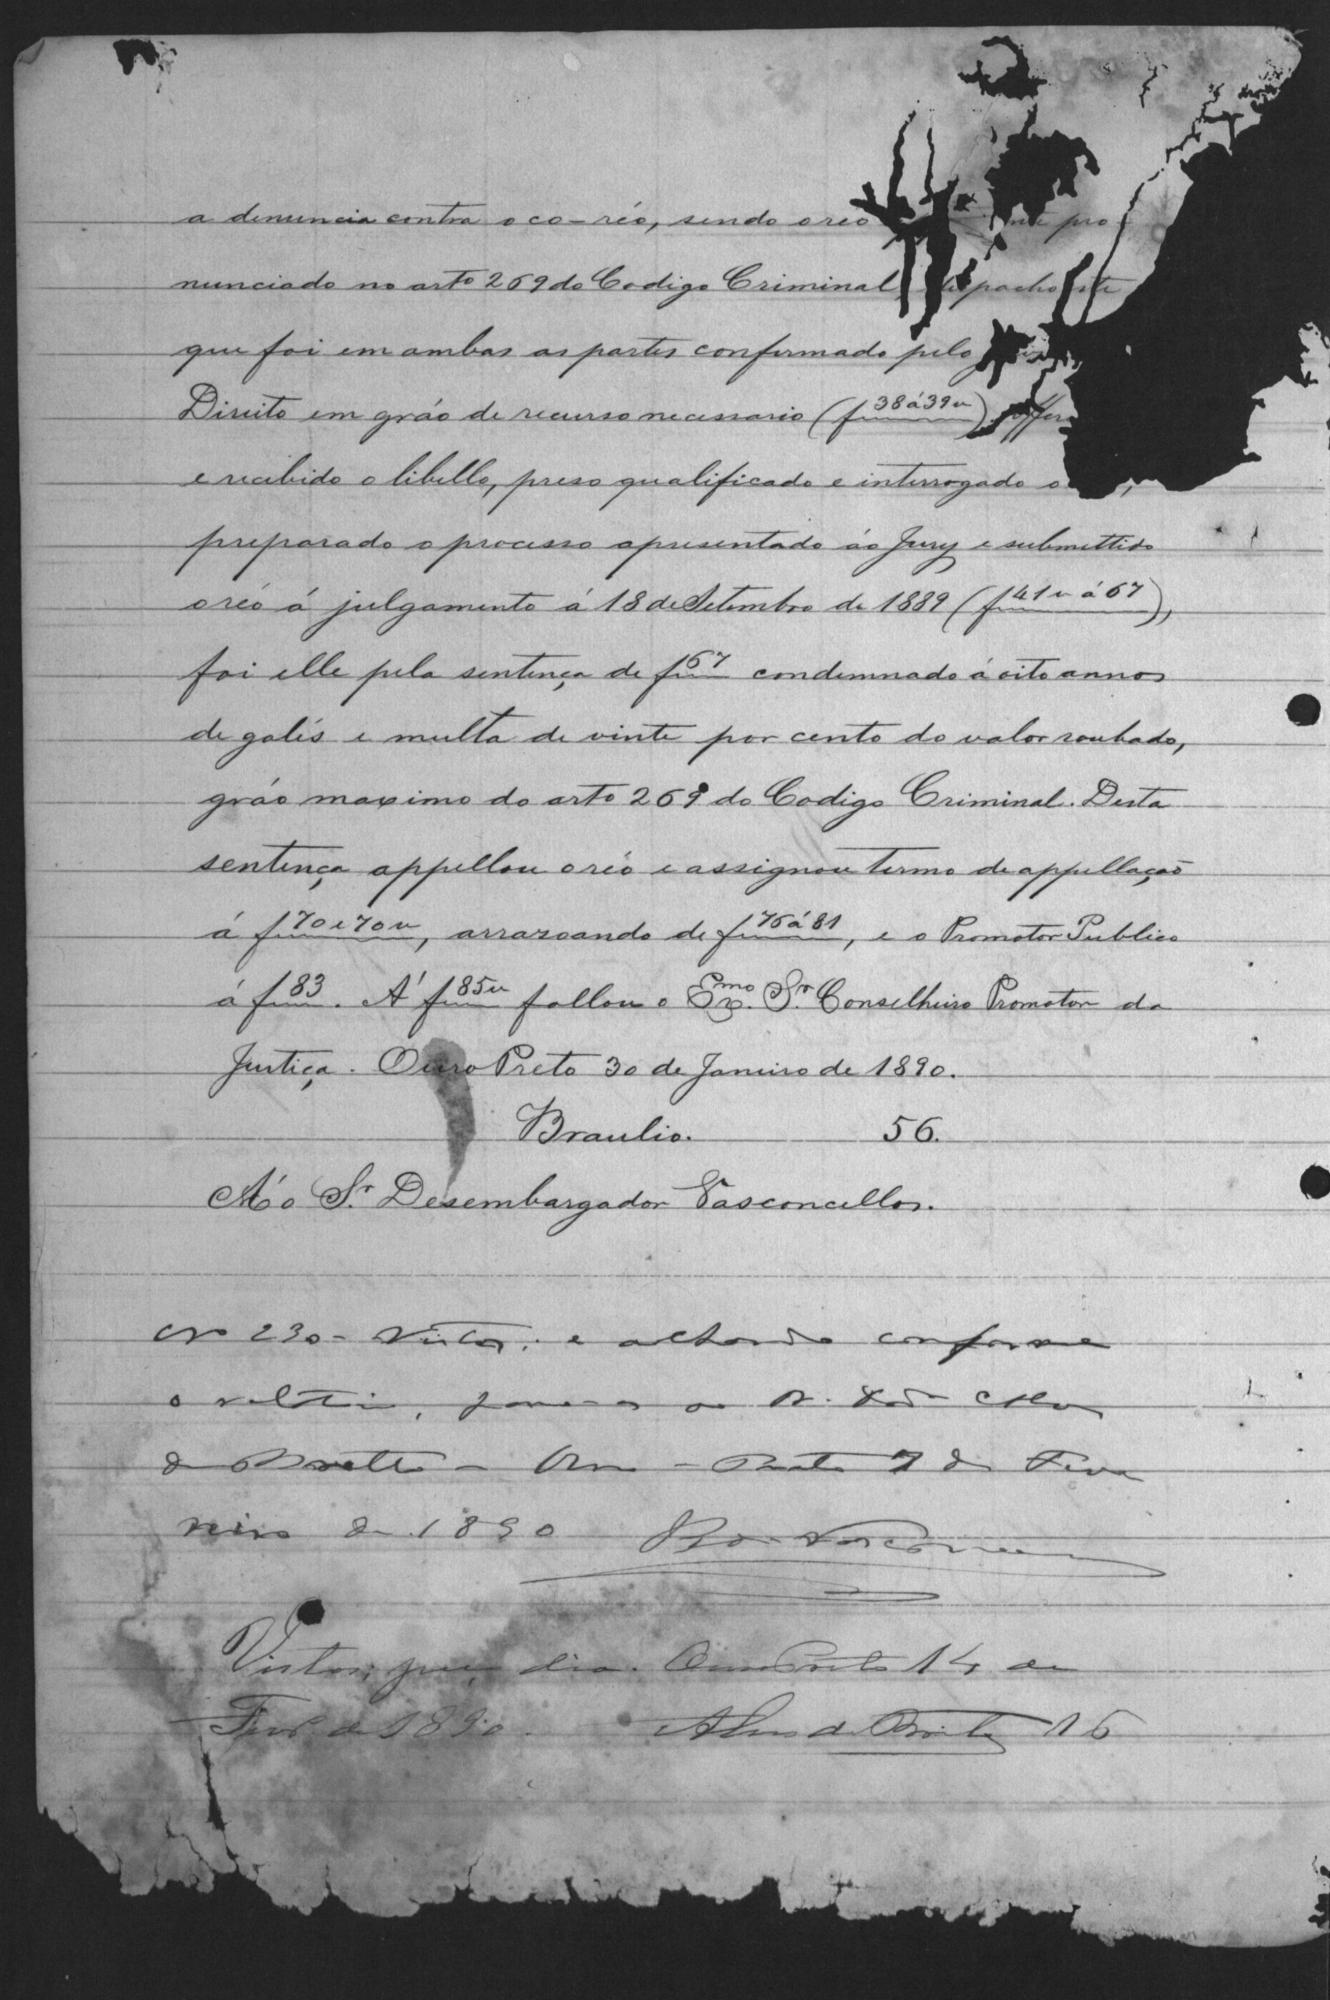 a denuncia contra o co-réo, sendo o reo pro-
nunciado no arto 269 do Codigo Criminal, despacho este
que foi em ambas as partes confirmado pelo
Direito em gráo de recurso necessario (f 38 á 39 v)
e recebido o libello, preso qualificado e interrogado o
preparado o processo apresentado áo Jury e submettido
o réo á julgamento á 18 de Setembro de 1889 (f 41 v á 67),
foi elle pela sentença de f 67 condemnado á oito annos
de galés e multa de vinte por cento do valor roubado,
gráo maximo do arto 269 do Codigo Criminal. Desta
sentença appellou o réo e assignou termo de appellação
á f 70 e 70 v, arrazoando de f 76 á 81, e o Promotor Publico
á f 83. A' f 85 v fallou o Exmo. Sr. Conselheiro Promotor da
Justiça. Ouro Preto 30 de Janeiro de 1890.
Braulio. 56.
Áo Sr. Desembargador Vasconcellos.
No 230 - Vistos; e achando conforme
o relatorio, passo-o ao
de Britto - Ouro - Preto 7 de Feve
reiro de 1890
Vistos; peço dia. Ouro Preto 14 de
Fevo de 1890. Alves de Brito 16